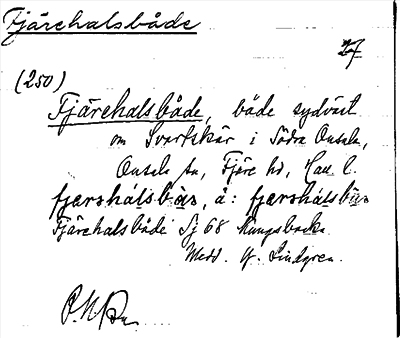 Fjärehalsbåde
27
(250)
Fjärehalsbåde, både sydväst
om Svartskär i Södra Onsala,
Onsala sn, Fjäre hd, Hall. l.
fjærshálsbàs, å: fjærshálsbàs
Fjärehalsbåde Sj 68 Kungsbacka.
Medd. Hj. Lindgren.